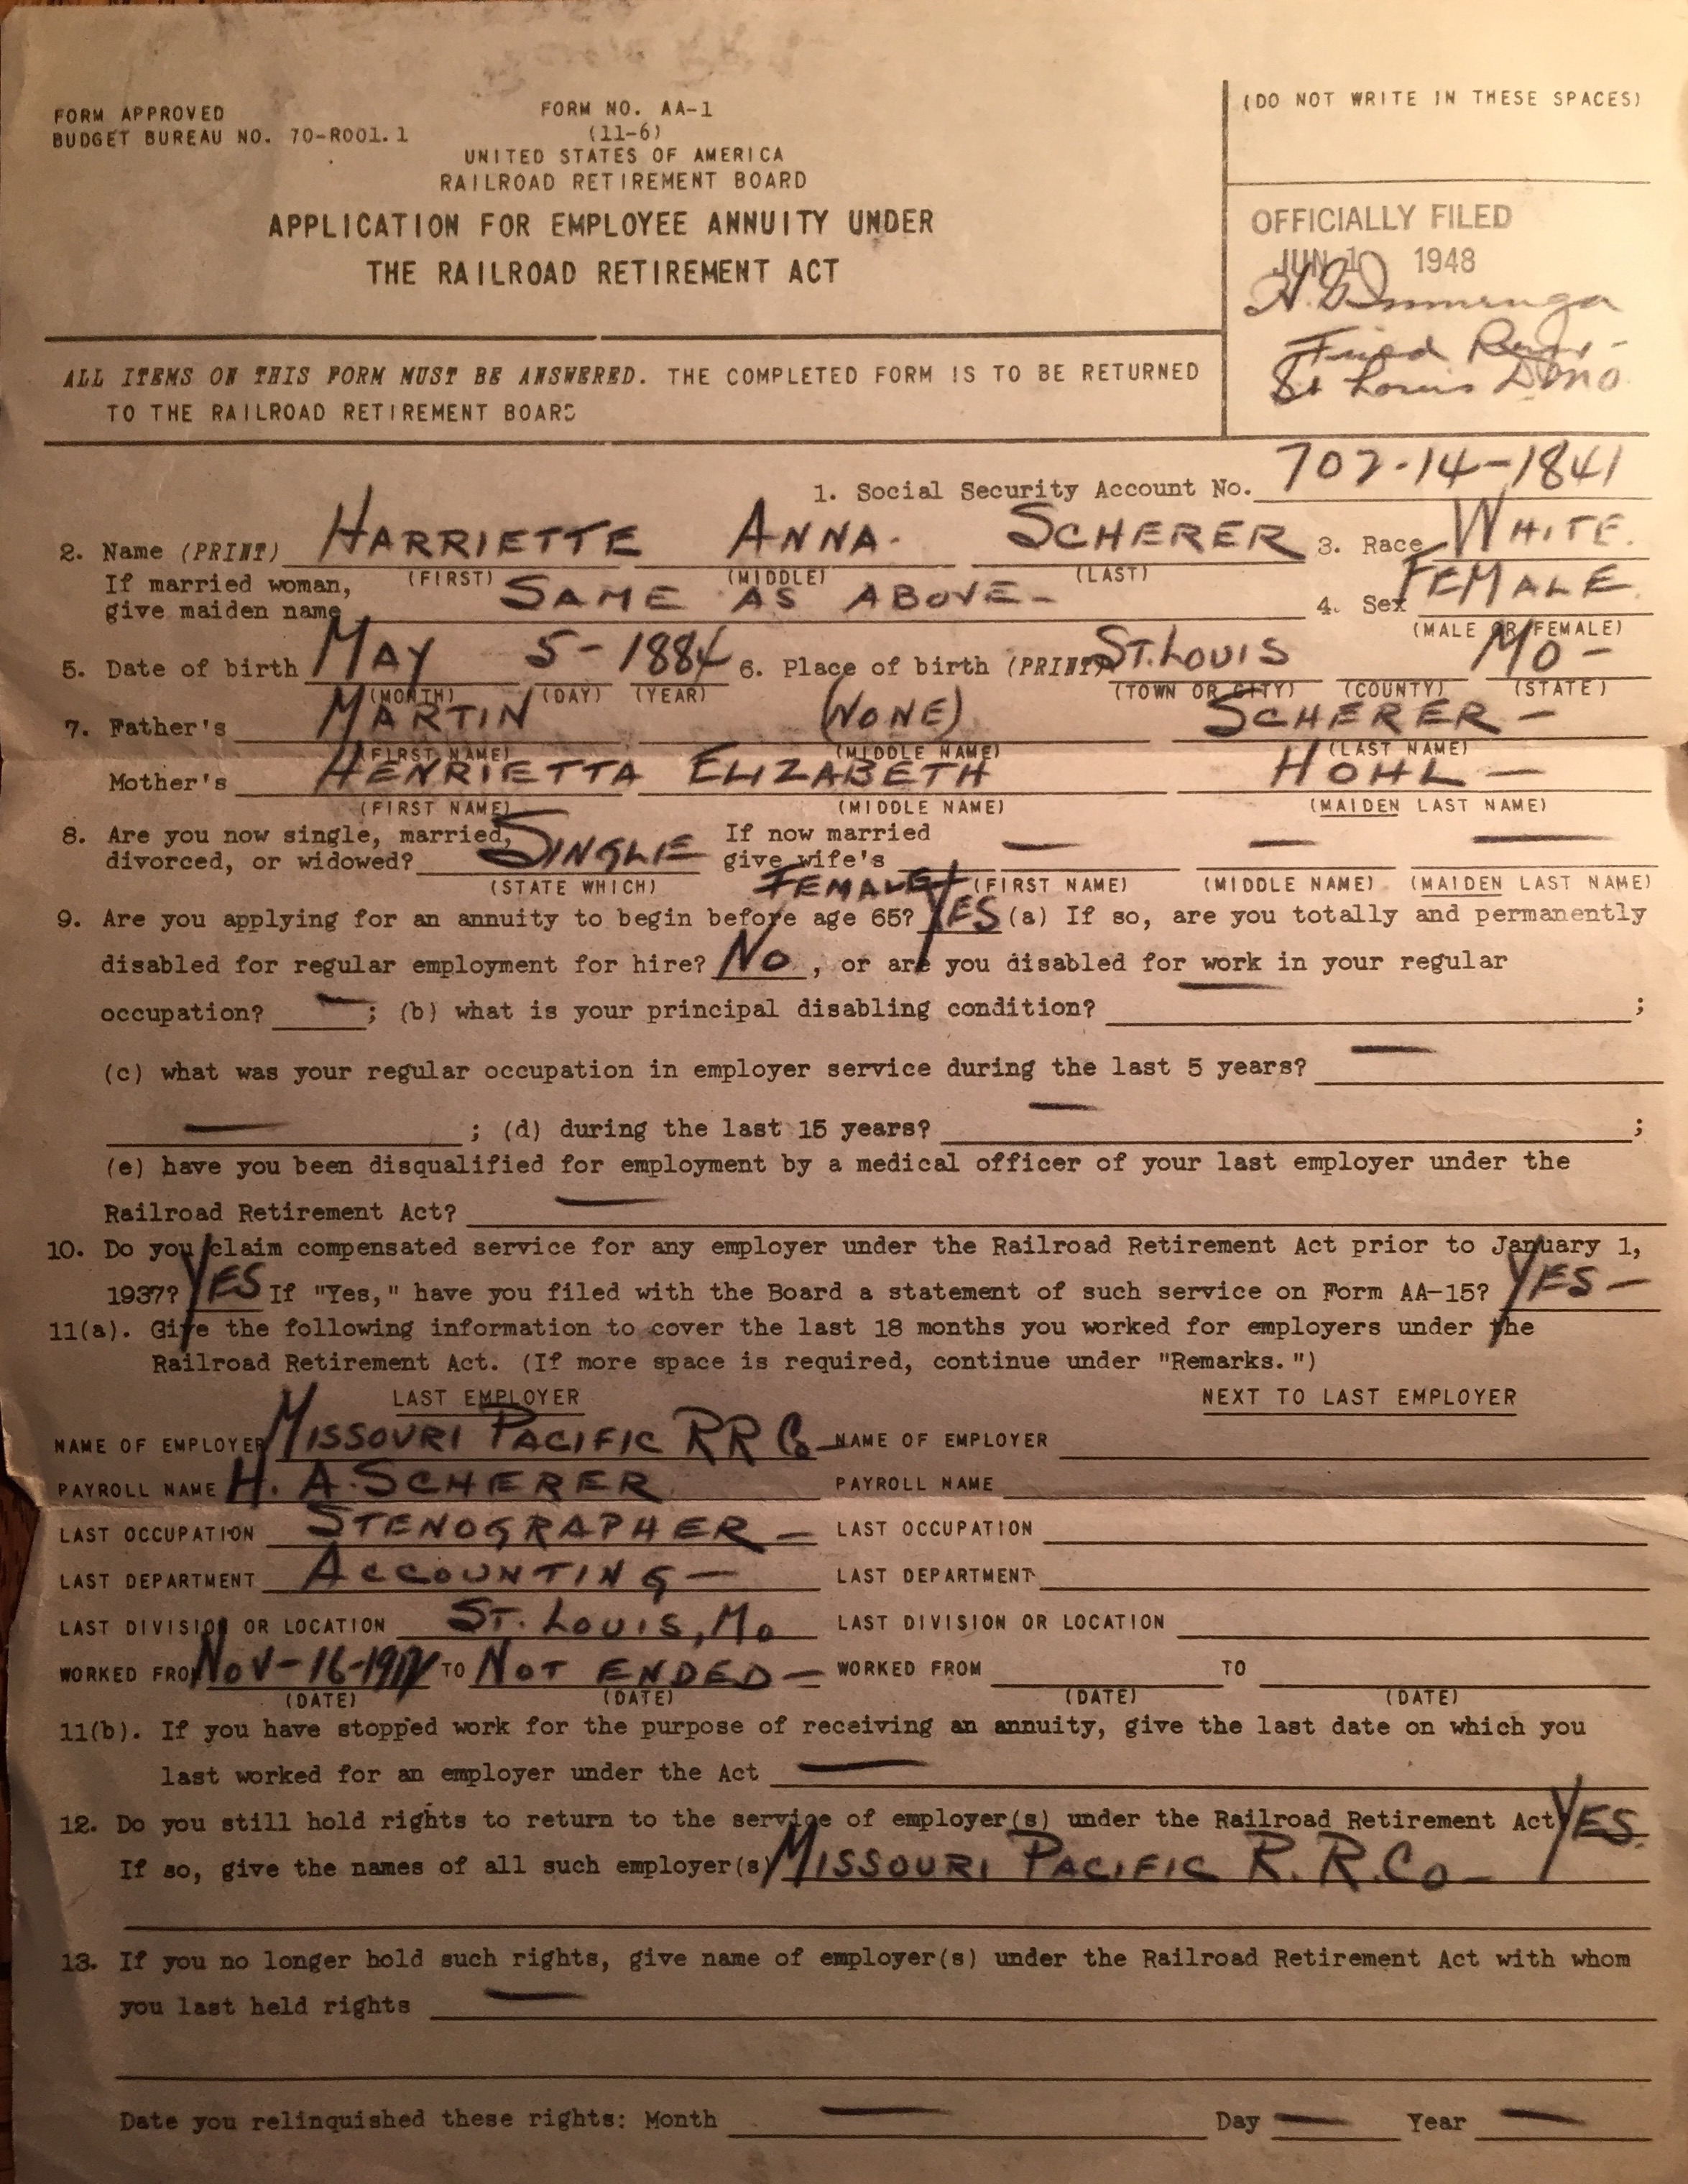 FORM APPROVED
BUDGET BUREAU NO. 70-R001.1
FORM NO. AA-1
(11-6)
UNITED STATES OF AMERICA
RAILROAD RETIREMENT BOARD
APPLICATION FOR EMPLOYEE ANNUITY UNDER
THE RAILROAD RETIREMENT ACT
(DO NOT WRITE IN THESE SPACES)
OFFICIALLY FILED
JUN 1948
St Louis
ALL ITEMS ON THIS FORM MUST BE ANSWERED. THE COMPLETED FORM IS TO BE RETURNED
TO THE RAILROAD RETIREMENT BOARD
1. Social Security Account No. 702-14-1841
2. Name (PRINT) HARRIETTE ANNA. SCHERER 3. Race WHITE.
(FIRST) (MIDDLE) (LAST)
If married woman, give maiden name SAME AS ABOVE- 4. Sex FEMALE
(MALE OR FEMALE)
5. Date of birth MAY 5-1884 6. Place of birth (PRINT) ST. LOUIS MO-
(MONTH) (DAY) (YEAR) (TOWN OR CITY) (COUNTY) (STATE)
7. Father's MARTIN (NONE) SCHERER-
(FIRST NAME) (MIDDLE NAME) (LAST NAME)
Mother's HENRIETTA ELIZABETH HOHL-
(FIRST NAME) (MIDDLE NAME) (MAIDEN LAST NAME)
8. Are you now single, married, divorced, or widowed? SINGLE If now married give wife's — — —
(STATE WHICH) (FIRST NAME) (MIDDLE NAME) (MAIDEN LAST NAME)
FEMALE
9. Are you applying for an annuity to begin before age 65? YES (a) If so, are you totally and permanently
disabled for regular employment for hire? No, or are you disabled for work in your regular
occupation? —; (b) what is your principal disabling condition? — ;
(c) what was your regular occupation in employer service during the last 5 years? —
— ; (d) during the last 15 years? — ;
(e) have you been disqualified for employment by a medical officer of your last employer under the
Railroad Retirement Act? —
10. Do you claim compensated service for any employer under the Railroad Retirement Act prior to January 1,
1937? YES If "Yes," have you filed with the Board a statement of such service on Form AA-15? YES-
11(a). Give the following information to cover the last 18 months you worked for employers under the
Railroad Retirement Act. (If more space is required, continue under "Remarks.")
LAST EMPLOYER NEXT TO LAST EMPLOYER
NAME OF EMPLOYER MISSOURI PACIFIC RR Co- NAME OF EMPLOYER
PAYROLL NAME H. A. SCHERER PAYROLL NAME
LAST OCCUPATION STENOGRAPHER- LAST OCCUPATION
LAST DEPARTMENT ACCOUNTING- LAST DEPARTMENT
LAST DIVISION OR LOCATION ST. LOUIS, Mo LAST DIVISION OR LOCATION
WORKED FROM NOV-16- TO NOT ENDED- WORKED FROM TO
(DATE) (DATE) (DATE) (DATE)
11(b). If you have stopped work for the purpose of receiving an annuity, give the last date on which you
last worked for an employer under the Act —
12. Do you still hold rights to return to the service of employer(s) under the Railroad Retirement Act YES.
If so, give the names of all such employer(s) MISSOURI PACIFIC R.R.Co-
13. If you no longer hold such rights, give name of employer(s) under the Railroad Retirement Act with whom
you last held rights —
Date you relinquished these rights: Month — Day — Year —